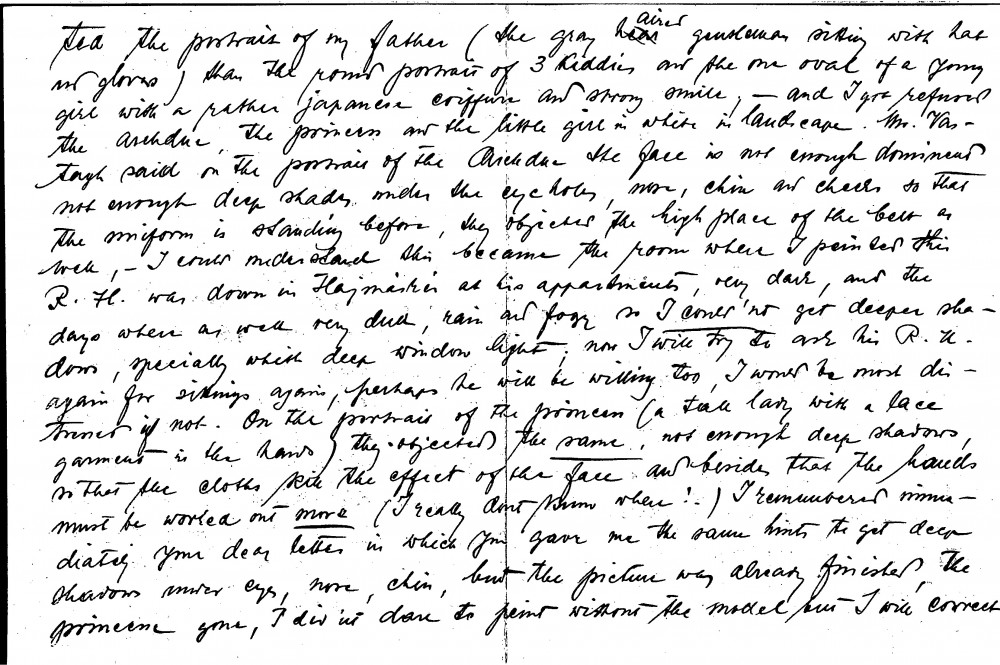 ted the portrait of my father (the gray haired gentleman sitting with hat
and gloves) than the round portrait of 3 kiddies and the one oval of a young
girl with a rather japanese coiffure and strong smile, — and I got refused
the archduc, the princess and the little girl in white in landscape. Mr. Vas-
tagh said on the portrait of the Archduc the face is not enough dominend
not enough deep shades under the eye holes, nose, chin and cheeks so that
the uniform is standing before, they objected the high place of the belt as
well, — I could understand this became the room where I peinted this
R. H. was down in Hajmáskér at his appartments, very dark, and the
days where as well very dull, rain and fogg so I could'nt get deeper sha-
dows, specially whith deep window light; now I will try to ask his R. H.
again for sittings again, perhaps he will be willing too, I would be most dis-
tressed if not. On the portrait of the princess (a tall lady with a lace
garment in the hand) they objected the same, not enough deep shadows,
so that the cloths kill the effect of the face and besides that the hands
must be worked out more (I really dont know where!..) I remembered imme-
diately your dear letter in which you gave me the same hints to get deep
shadows under eyes, nose, chin, but the picture was already finished, the
princesse gone, I did'nt dare to peint without the model but I will correct